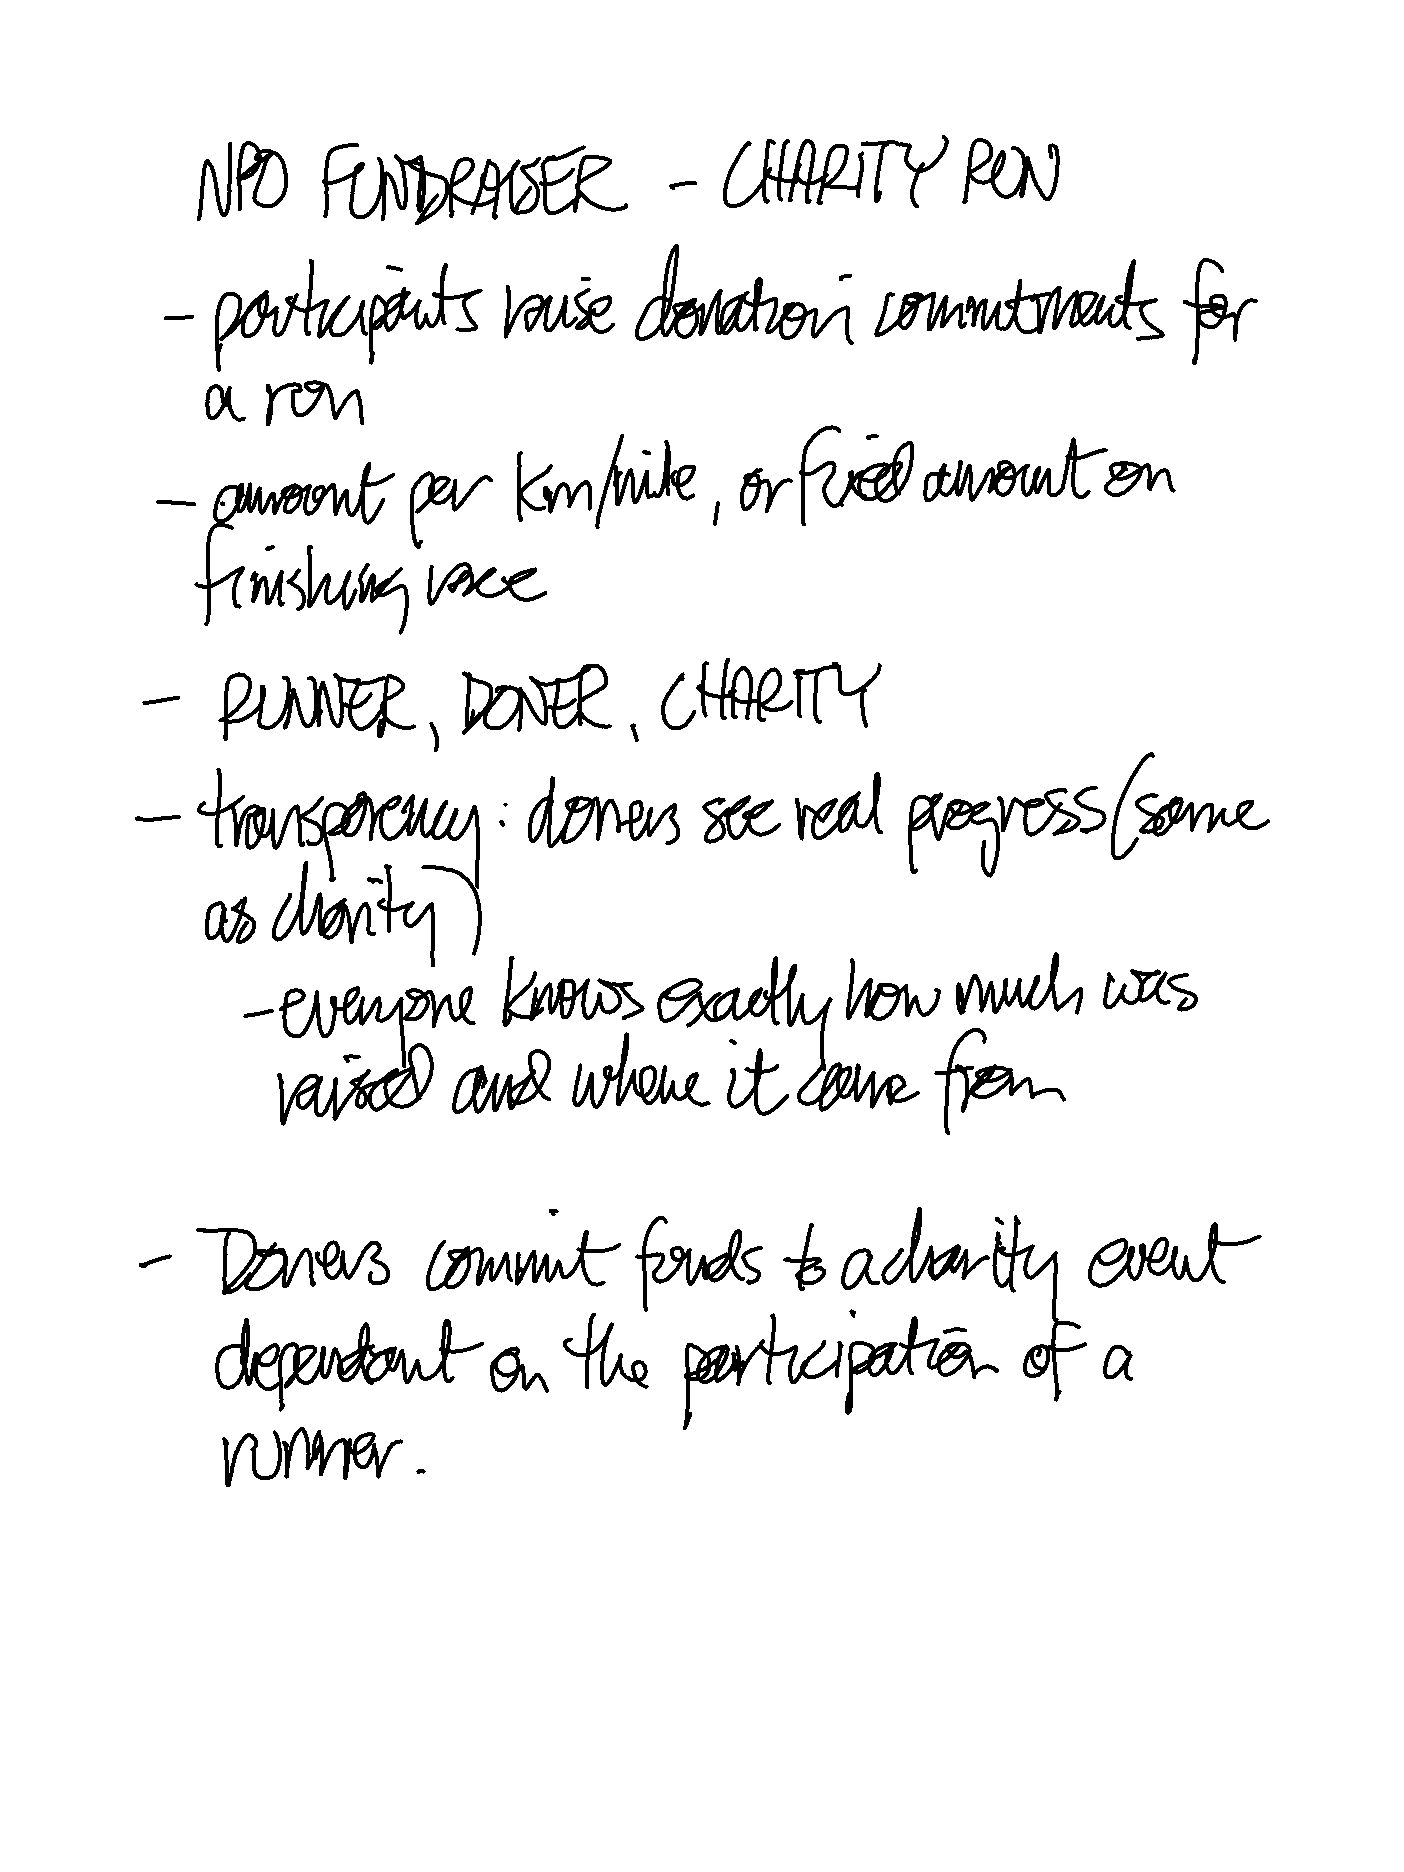 NPO FUNDRAISER - CHARITY RUN
- participants raise donation commitments for
a run
- amount per km/mile, or fixed amount on
finishing race
- RUNNER, DONER, CHARITY
- transparency: doners see real progress (same
as charity)
- everyone knows exactly how much was
raised and where it came from
- Doners commit funds to a charity event
dependant on the participation of a
runner.